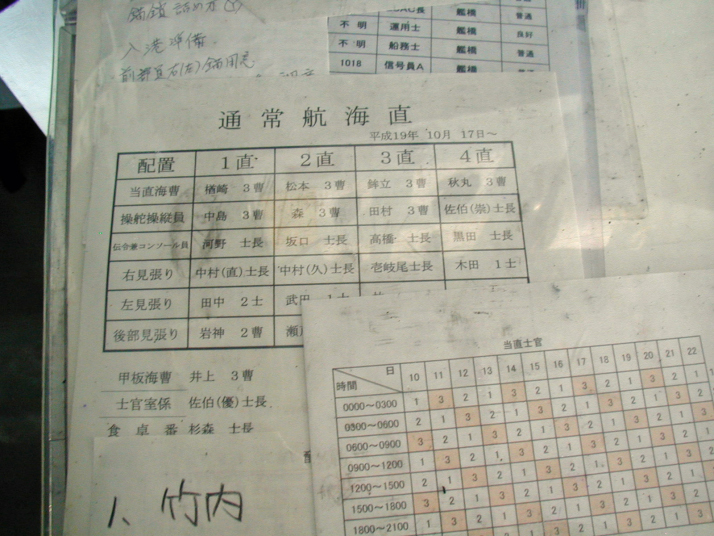 入港準備
不明 運用士 艦橋 良好
不明 船務士 艦橋 普通
1018 信号員A 艦橋 普通
通常航海直
平成19年 10月 17日～
配置 1直 2直 3直 4直
当直海曹 楢崎 3曹 松本 3曹 鉾立 3曹 秋丸 3曹
操舵操縦員 中島 3曹 森 3曹 田村 3曹 佐伯(崇)士長
伝令兼コンソール員 河野 士長 坂口 士長 高橋 士長 黒田 士長
右見張り 中村(直)士長 中村(久)士長 壱岐尾士長 木田 1士
左見張り 田中 2士 武田 1士
後部見張り 岩神 2曹
甲板海曹 井上 3曹
士官室係 佐伯(優)士長
食卓番 杉森 士長
竹内
当直士官
日 10 11 12 13 14 15 16 17 18 19 20 21 22
時間
0000～0300 1 3 2 1 3 2 1 3 2 1 3 2 1
0300～0600 2 1 3 2 1 3 2 1 3 2 1 3 2
0600～0900 3 2 1 3 2 1 3 2 1 3 2 1
0900～1200 1 3 2 1 3 2 1 3 2 1 3 2
1200～1500 2 1 3 2 1 3 2 1 3 2 1 3
1500～1800 3 2 1 3 2 1 3 2 1 3 2 1
1800～2100 1 3 2 1 3 2 1 3 2 1 3 2